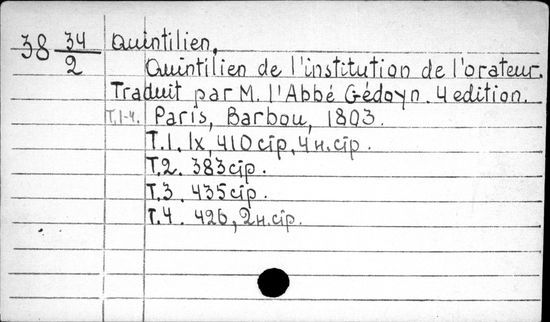 38 34/2 Quintilien.
Quintilien de l'institution de l'orateur.
Traduit par M. l'Abbé Gédoyn. 4 edition.
T.1-4. Paris, Barbou, 1803.
T.1. IX, 410 cip, 4 н. cip.
T.2. 383 cip.
T.3. 435 cip.
T.4. 426, 2 н. cip.